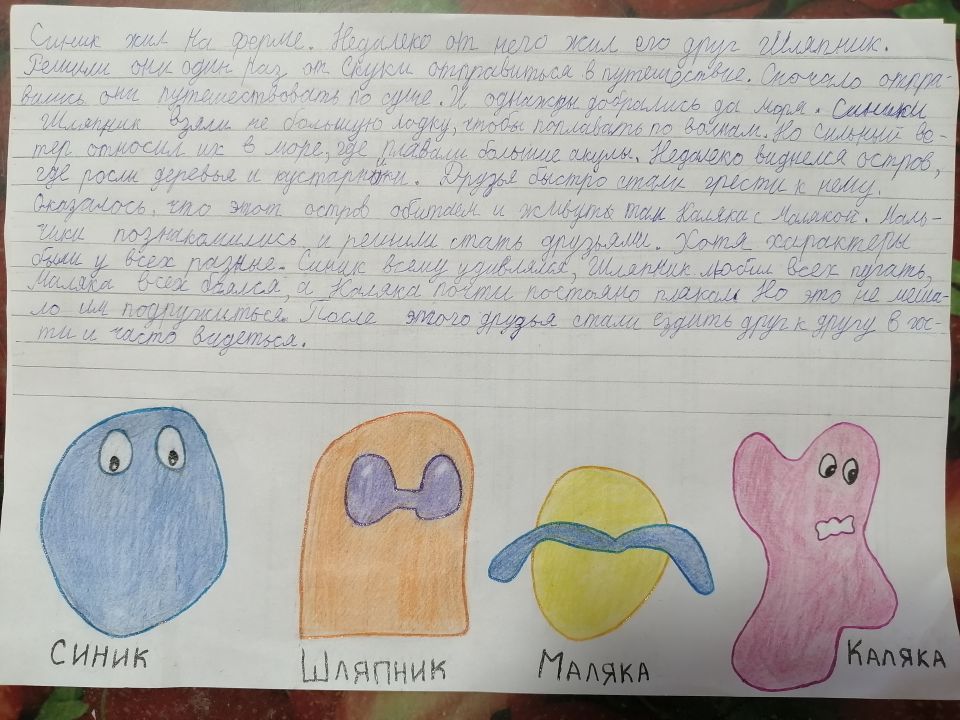 Синик жил на ферме. Недалеко от него жил его друг Шляпник.
Решили они один раз от скуки отправиться в путешествие. Сночало отпра-
вились они путешествовать по суше. И однажды добрались да моря. Синики
Шляпник взяли не большую лодку, чтобы поплавать по волнам. Но сильный ве-
тер относил их в море, где плавали большие акулы. Недалеко виднелся остров,
где росли деревья и кустарники. Друзья быстро стали грести к нему.
Оказалось, что этот остров обитаем и живуть там Каляка с Малякой. Маль-
чики познакомились и решили стать друзьями. Хотя характеры
были у всех разные. Синик всему удивлялся, Шляпник любил всех пугать,
Маляка всех боялся, а Каляка почти постояно плакал. Но это не меша-
ло им подружиться. После этого друзья стали ездить друг к другу в гос-
ти и часто видеться.
СИНИК
ШЛЯПНИК
МАЛЯКА
КАЛЯКА